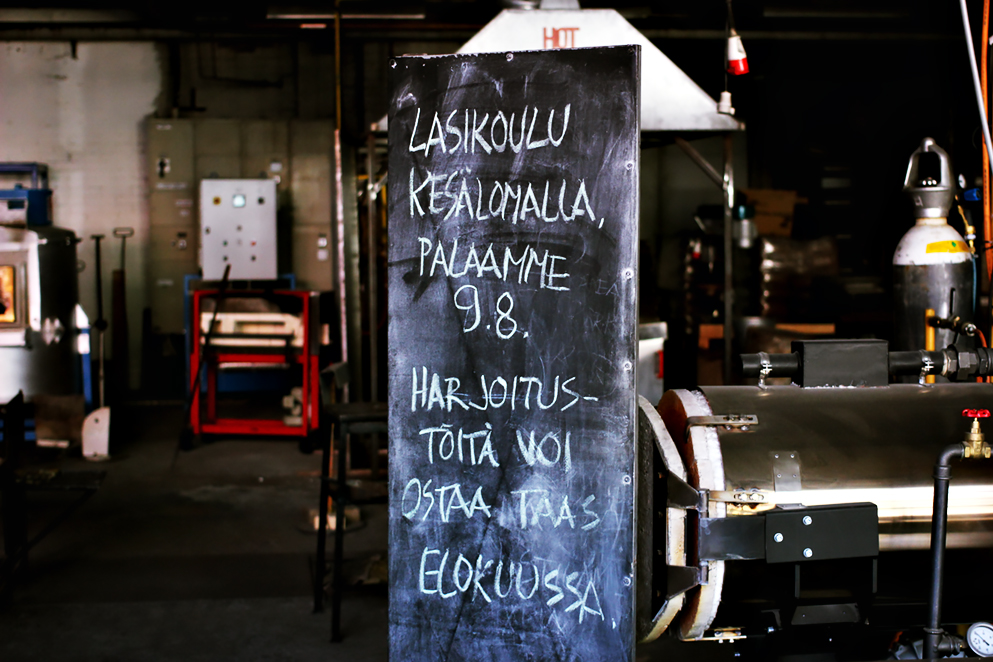 HOT
LASIKOULU
KESÄLOMALLA,
PALAAMME
9.8.
HARJOITUS-
TÖITÄ VOI
OSTAA TAAS
ELOKUUSSA.